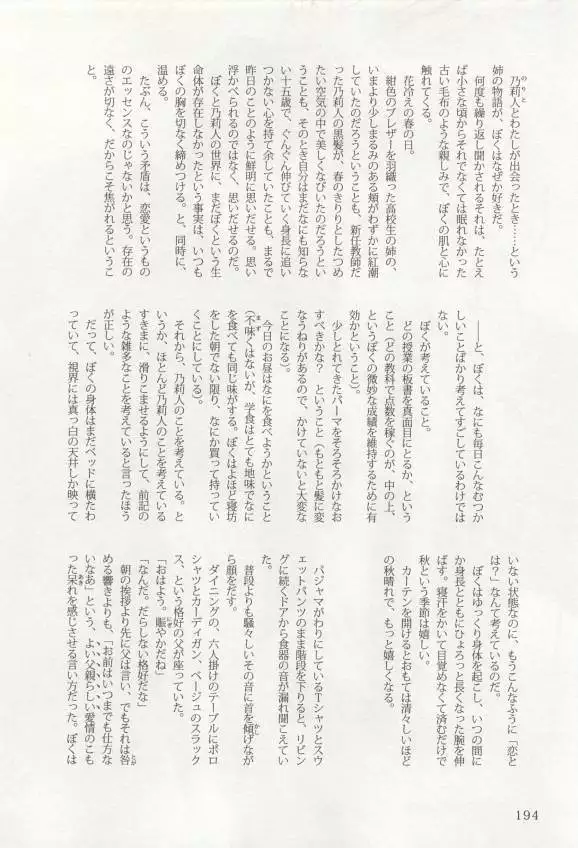 乃莉人とわたしが出会ったとき……という
姉の物語が、ぼくはなぜか好きだ。
何度も繰り返し聞かされるそれは、たとえ
ば小さな頃からそれでなくては眠れなかった
古い毛布のような親しみで、ぼくの肌と心に
触れてくる。
花冷えの春の日。
紺色のブレザーを羽織った高校生の姉の、
いまより少しまるみのある頬がわずかに紅潮
していたのだろうということも、新任教師だ
った乃莉人の黒髪が、春のきりりとしたつめ
たい空気の中で美しくなびいたのだろうとい
うことも、そのとき自分はまだなにも知らな
い十五歳で、ぐんぐん伸びていく身長に追い
つかない心を持て余していたことも、まるで
昨日のことのように鮮明に思いだせる。思い
浮かべられるのではなく、思いだせるのだ。
ぼくと乃莉人の世界に、まだぼくという生
命体が存在しなかったという事実は、いつも
ぼくの胸を切なく締めつける。と、同時に、
温める。
たぶん、こういう矛盾は、恋愛というもの
のエッセンスなのじゃないかと思う。存在の
遠さが切なく、だからこそ焦がれるというこ
と。
――と、ぼくは、なにも毎日こんなむつか
しいことばかり考えてすごしているわけでは
ない。
ぼくが考えていること。
どの授業の板書を真面目にとるか、という
こと（どの教科で点数を稼ぐのが、中の上、
というぼくの微妙な成績を維持するために有
効かということ）。
少しとれてきたパーマをそろそろかけなお
すべきかな？　ということ（もともと髪に変
なうねりがあるので、かけていないと大変な
ことになる）。
今日のお昼はなにを食べようかということ
（不味くはないが、学食はとても地味でなに
を食べても同じ味がする。ぼくはよほど寝坊
をした朝でない限り、なにか買って持ってい
くことにしている）。
それから、乃莉人のことを考えている。と
いうか、ほとんど乃莉人のことを考えている
すきまに、滑りこませるようにして、前記の
ような雑多なことを考えていると言ったほう
が正しい。
だって、ぼくの身体はまだベッドに横たわ
っていて、視界には真っ白の天井しか映って
いない状態なのに、もうこんなふうに「恋と
は？」なんて考えているのだ。
ぼくはゆっくり身体を起こし、いつの間に
か身長とともにひょろっと長くなった腕を伸
ばす。寝汗をかいて目覚めなくて済むだけで
秋という季節は嬉しい。
カーテンを開けるとおもては清々しいほど
の秋晴れで、もっと嬉しくなる。
パジャマがわりにしているＴシャツとスウ
ェットパンツのまま階段を下りると、リビン
グに続くドアから食器の音が漏れ聞こえてい
た。
普段よりも騒々しいその音に首を傾げなが
ら顔をだす。
ダイニングの、六人掛けのテーブルにポロ
シャツとカーディガン、ベージュのスラック
ス、という格好の父が座っていた。
「おはよう。賑やかだね」
「なんだ。だらしない格好だな」
朝の挨拶より先に父は言い、でもそれは咎
める響きよりも、「お前はいつまでも仕方な
いなあ」という、よい父親らしい愛情のこも
った呆れを感じさせる言い方だった。ぼくは
194